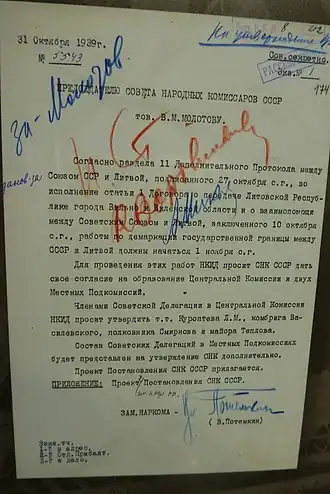 На утверждение
31 Октября 1939г.
№ 5543
Сов.секретно.
Экз.№ 1
174
за-Молотов
ПРЕДСЕДАТЕЛЮ СОВЕТА НАРОДНЫХ КОМИССАРОВ СССР
тов. В.М.МОЛОТОВУ.
Согласно раздела 11 Дополнительного Протокола между
Союзом ССР и Литвой, подписанного 27 октября с.г., во
исполнение статьи 1 Договора о передаче Литовской Респуб-
лике города Вильно и Виленской области и о взаимопомощи
между Советским Союзом и Литвой, заключенного 10 октября
с.г., работы по демаркации государственной границы между
СССР и Литвой должны начаться 1 ноября с.г.
Для проведения этих работ НКИД просит СНК СССР дать
свое согласие на образование Центральной Комиссии и двух
Местных Подкомиссий.
Членами Советской Делегации в Центральной Комиссии
НКИД просит утвердить т.т. Куроптева Л.М., комбрига Ва-
силевского, полковника Смирнова и майора Теплова.
Состав Советских Делегаций в Местных Подкомиссиях
будет представлен на утверждение СНК дополнительно.
Проект Постановления СНК СССР прилагается.
ПРИЛОЖЕНИЕ: Проект Постановления СНК СССР.
ЗАМ.НАРКОМА -
(В.Потемкин)
в адрес,
Отд.Прибалт.
в дело,